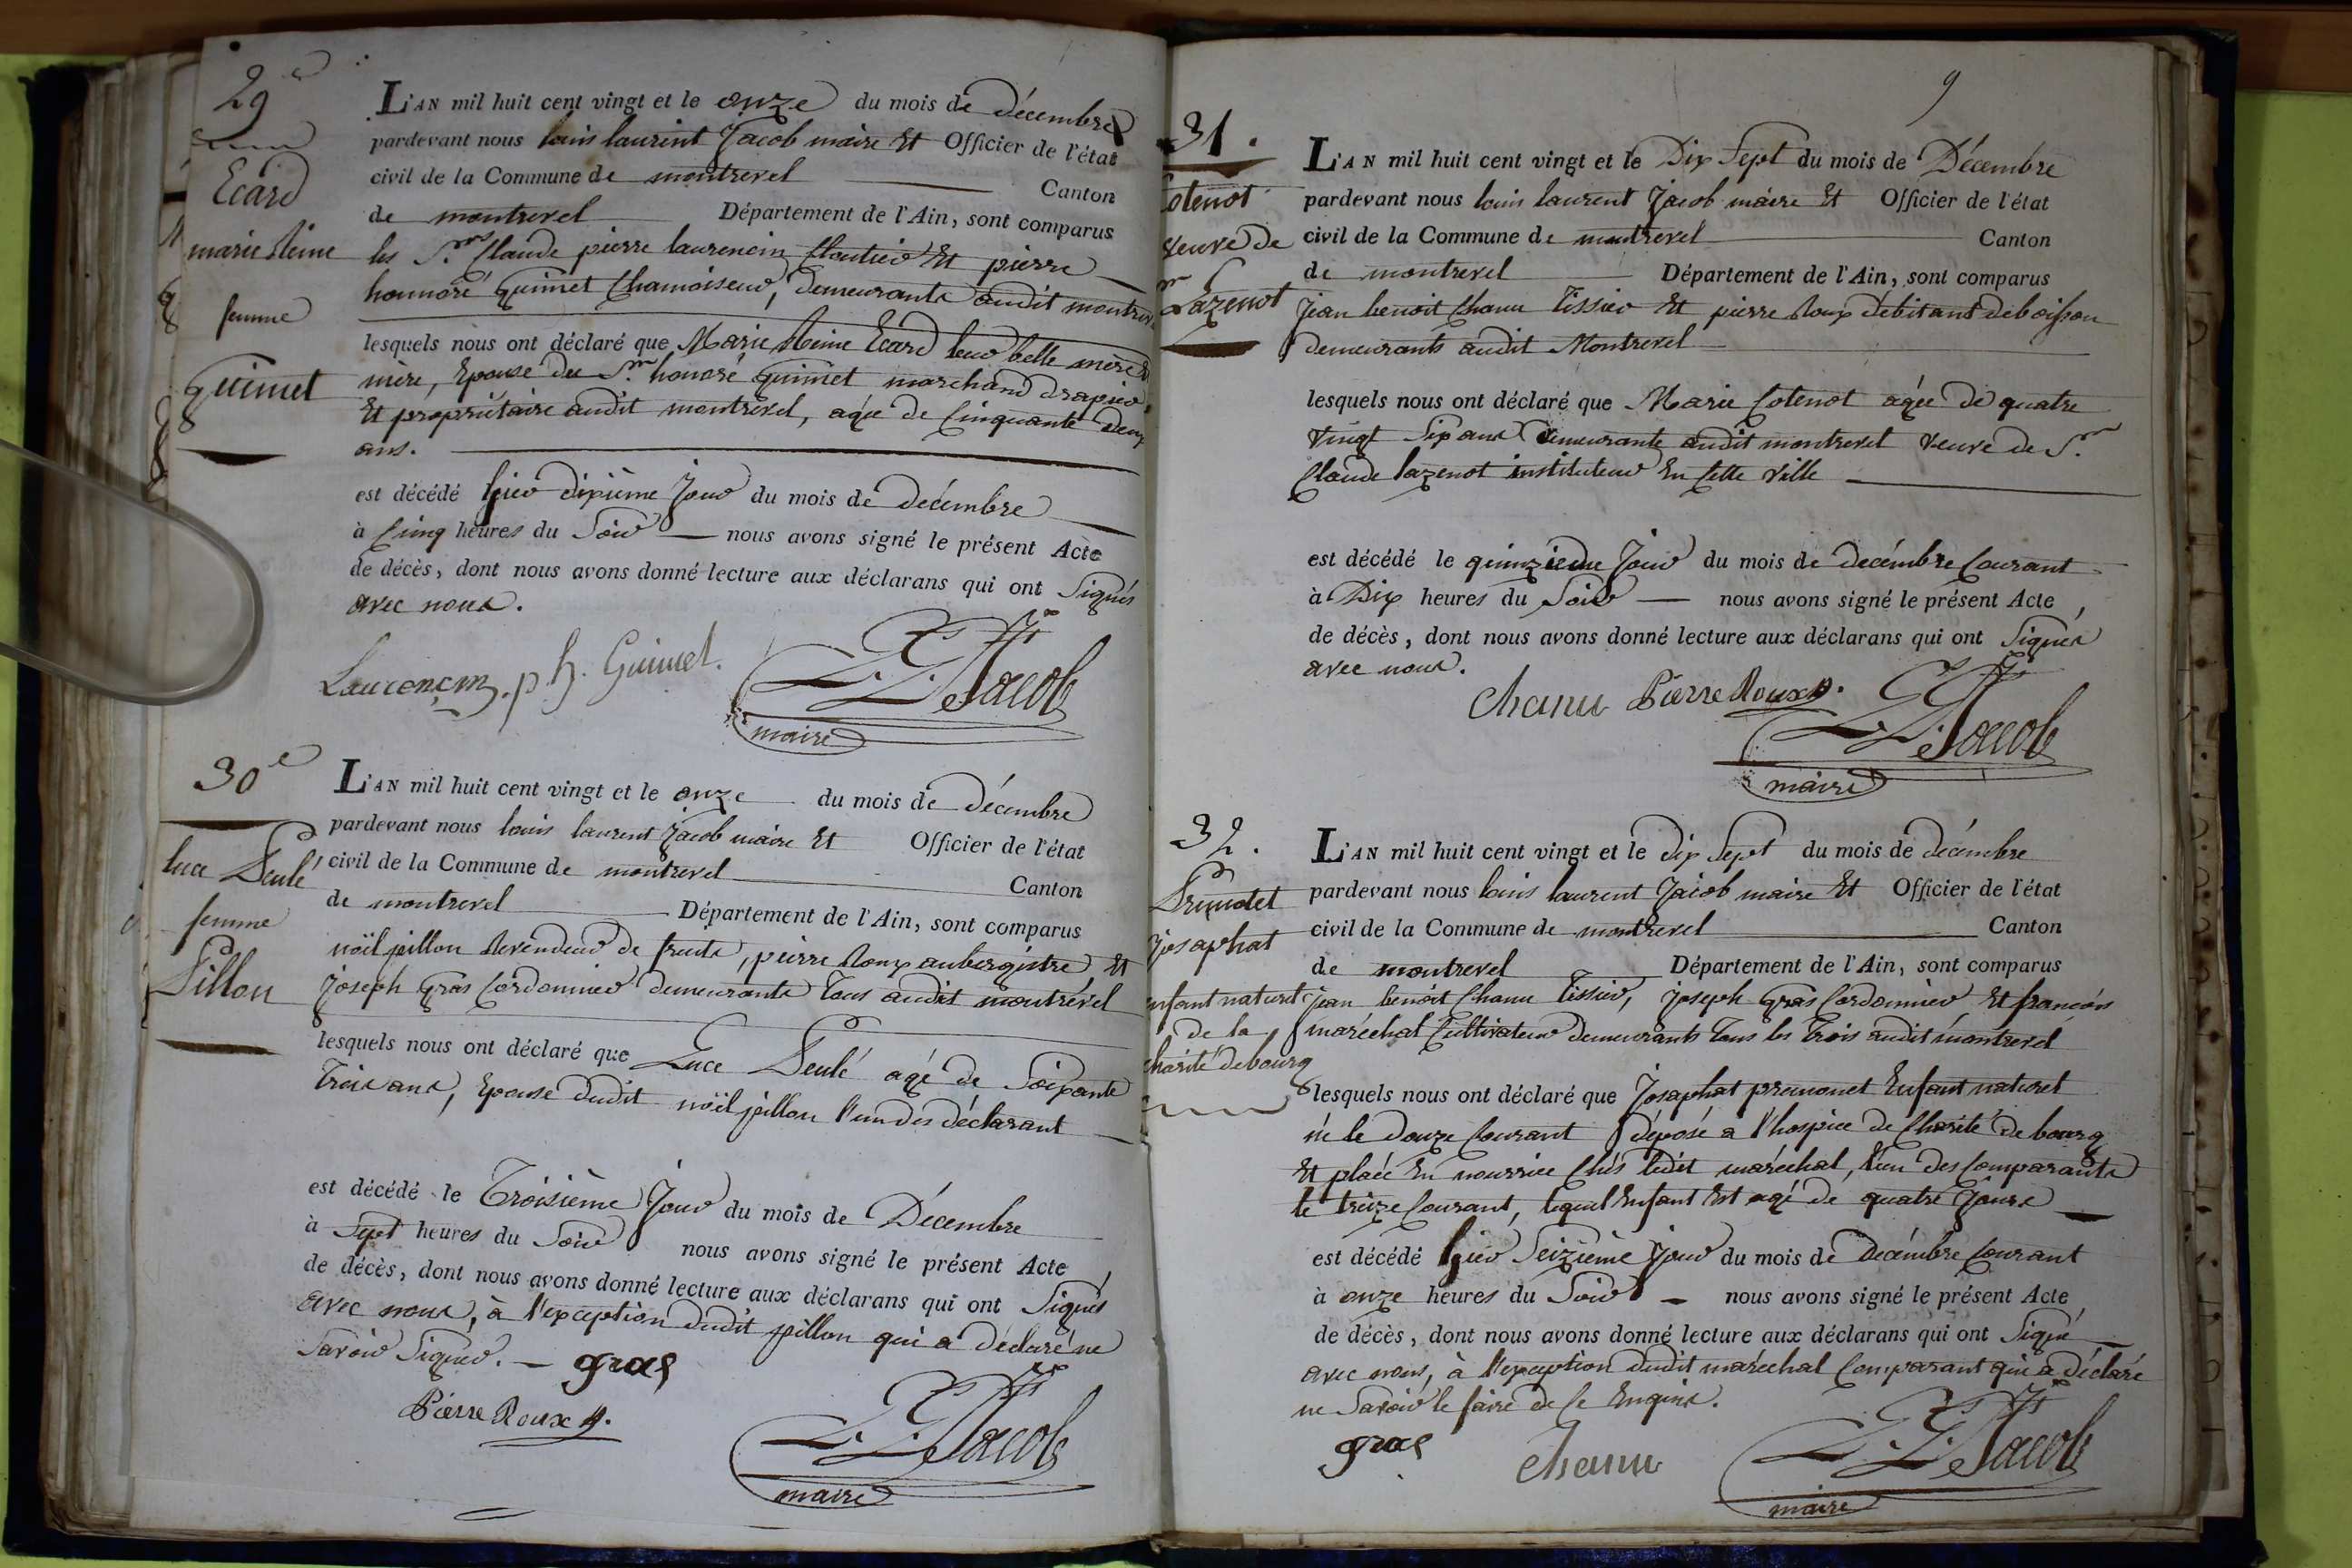 29e
Ecard
marie Reine
femme
Guimet
L'AN mil huit cent vingt et le onze du mois de décembre
pardevant nous louis laurent Jacob maire et Officier de l'état
civil de la Commune de montrevel Canton
de montrevel Département de l'Ain, sont comparus
les Srs Claude pierre laurencin Cloutier et pierre
honnoré Guimet Chamoiseur, demeurants audit montrevel
lesquels nous ont déclaré que Marie Reine Ecard leur belle mère et
mère, Epouse du Sr honoré Guimet marchand drapier,
et propriétaire audit montrevel, agée de Cinquante deux
ans.
est décédé hier dixième Jour du mois de decémbre
à Cinq heures du Soir nous avons signé le présent Acte
de décès, dont nous avons donné lecture aux déclarans qui ont Signés
avec nous.
Laurençin. p h. Guimet. L. L. Jacob
maire
30e
luce Seulé
femme
Pillon
L'AN mil huit cent vingt et le onze du mois de décembre
pardevant nous louis laurent Jacob maire et Officier de l'état
civil de la Commune de montrevel Canton
de montrevel Département de l'Ain, sont comparus
noël pillon Revendeur de fruits, pierre Roux aubergistre et
Joseph Gras Cordonnier demeurants tous audit montrevel
lesquels nous ont déclaré que Luce Seulé agé de Soixante
trois ans, Epouse dudit noël pillon l'un des déclarant
est décédé le Troisième Jour du mois de Décembre
à Sept heures du Soir nous avons signé le présent Acte
de décès, dont nous avons donné lecture aux déclarans qui ont Signés
avec nous, à l'exception dudit pillon qui a déclaré ne
Savoir Signer. gras
Pierre Roux
L. L. Jacob
maire
9
31.
Cotenot
veuve de
Sr
Lazenot
L'AN mil huit cent vingt et le Dix Sept du mois de Décembre
pardevant nous louis laurent Jacob maire et Officier de l'état
civil de la Commune de montrevel Canton
de montrevel Département de l'Ain, sont comparus
Jean benoit Chanu tissier et pierre Roux débitant de boisson
demeurants audit Montrevel
lesquels nous ont déclaré que Marie Cotenot agée de quatre
vingt Six ans demeurante audit montrevel veuve de Sr
Claude lazenot instituteur en Cette ville
est décédé le quinzieme Jour du mois de decémbre Courant
à Dix heures du Soir nous avons signé le présent Acte,
de décès, dont nous avons donné lecture aux déclarans qui ont Signés
avec nous.
Chanu Pierre Roux
L. L. Jacob
maire
32.
Josaphat
enfant naturel
de la
charité de bourg
L'AN mil huit cent vingt et le dix Sept du mois de décémbre
pardevant nous louis laurent Jacob maire et Officier de l'état
civil de la Commune de montrevel Canton
de montrevel Département de l'Ain, sont comparus
Jean benoit Chanu tissier, Joseph Gras Cordonnier et francois
maréchal Cultivateur demeurants tous les trois audit montrevel
lesquels nous ont déclaré que Josaphat premonet Enfant naturel
né le douze Courant déposé a l'hospice de Charité de bourg
et placé en nourrice Chés ledit maréchal, l'un des Comparants
le treize Courant, lequel Enfant est agé de quatre Jours
est décédé hier Seizième jour du mois de decémbre Courant
à onze heures du Soir nous avons signé le présent Acte
de décès, dont nous avons donné lecture aux déclarans qui ont Signé
avec nous, à l'exception dudit maréchal Comparant qui a déclaré
ne Savoir le faire de Ce Enquis.
gras Chanu L. L. Jacob
maire